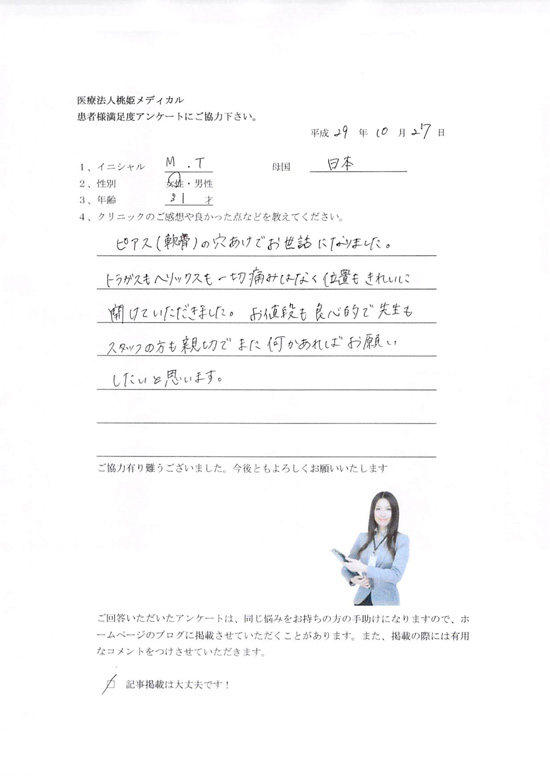 医療法人桃姫メディカル
患者様満足度アンケートにご協力下さい。
平成 29 年 10 月 27 日
1、イニシャル M.T 母国 日本
2、性別 女性・男性
3、年齢 31 才
4、クリニックのご感想や良かった点などを教えてください。
ピアス(軟骨)の穴あけでお世話になりました。
トラガスもヘリックスも一切痛みはなく位置もきれいに
開けていただきました。お値段も良心的で先生も
スタッフの方も親切でまた何かあればお願い
したいと思います。
ご協力有り難うございました。今後ともよろしくお願いいたします
ご回答いただいたアンケートは、同じ悩みをお持ちの方の手助けになりますので、ホ
ームページのブログに掲載させていただくことがあります。また、掲載の際には有用
なコメントをつけさせていただきます。
☑ 記事掲載は大丈夫です！